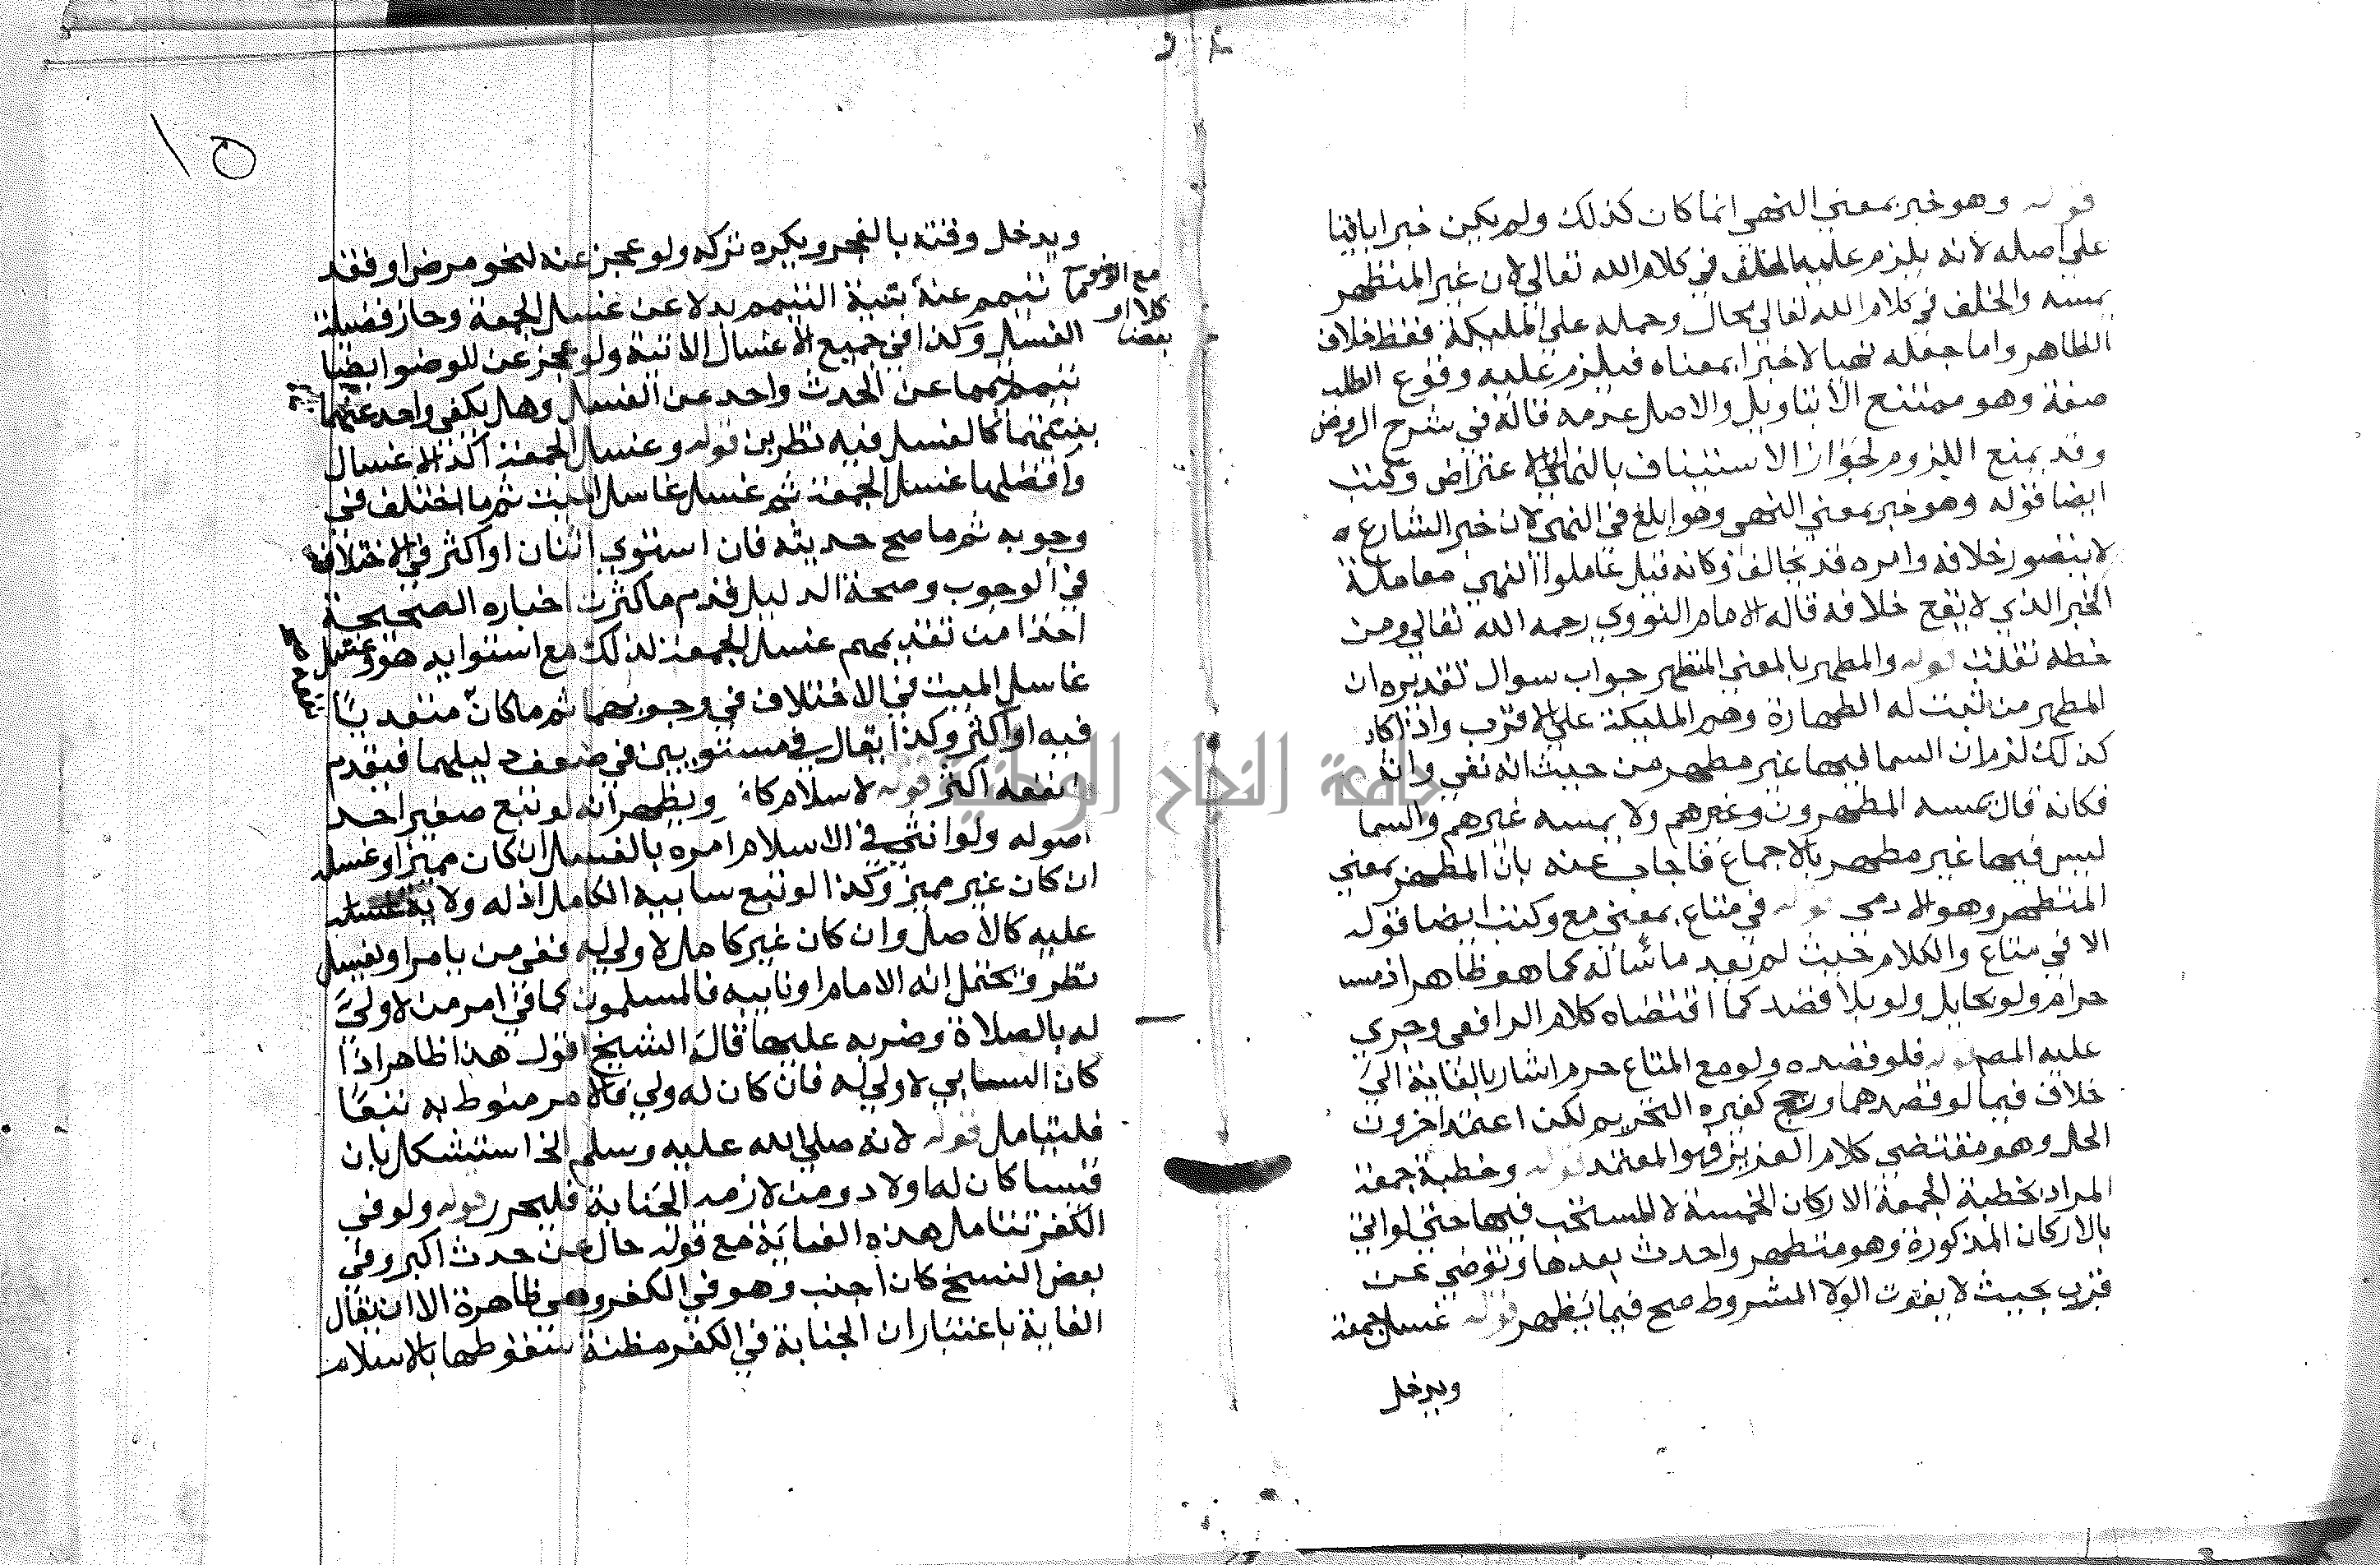 قوله وهو خبر بمعني النهي انما كان كذلك ولم يكن خبرا باقيا
علي اصله لانه يلزم عليه الخلف في كلام الله تعالي لان غير المتطهر
يمسه والخلف في كلام الله تعالي محال وحمله علي المليكة فقط خلاف
الظاهر واما جعله نهيا لا خبرا بمعناه فيلزم عليه وقوع الطلب
صفة وهو ممتنع الا بتاويل والاصل عدمه قاله في شرح الروض
وقد يمنع اللزوم لجواز الاستيناف بالنهي الاعتراض وكتب
ايضا قوله وهو خبر بمعني النهي وهو ابلغ في النهي لان خبر الشارع
لا يتصور خلافه وامره قد يخالف وكانه قيل عاملوا النهي معاملة
الخبر الذي لا يقع خلافه قاله الامام النووي رحمه الله تعالي ومن
خطه نقلت قوله والمطهر بالمعني المتطهر جواب سوال تقديره ان
المطهر من ثبت له الطهارة وهم المليكة علي الاقرب واذا كان
كذلك لزم ان السما فيها غير مطهر من حيث انه نفي وانه
فكانه قال يمسه المطهرون وغيرهم ولا يمسه غيرهم والسما
ليس فيها غير مطهر بالاجماع فاجاب عنه بان المطهر بمعني
المتطهر وهو الادمي قوله في متاع بمعني مع وكتب ايضا قوله
الا في متاع والكلام حيث لم يعد ماسا له كما هو ظاهر اذ مسه
حرام ولو بحايل ولو بلا قصد كما اقتضاه كلام الرافعي وجري
عليه المص قوله فلو قصده ولو مع المتاع حرم اشار بالغاية الي
خلاف فيما لو قصدهما ورجح كغيره التحريم لكن اعتمد اخرون
الحل وهو مقتضي كلام العزيز فهو المعتمد قوله وخطبة جمعة
المراد بخطبة الجمعة الاركان الخمسة لا المستحب فيها حتي لو اتي
بالاركان المذكورة وهو متطهر واحدث بعدها وتوضي عن
قرب بحيث لا يفوت الولا المشروط صح فيما يظهر قوله غسل جمعة
ويدخل
١٥
ويدخل وقته بالفجر ويكره تركه ولو عجز عنه لنحو مرض او فقد
ما تيمم عنه بنية التيمم بدلا عن غسل الجمعة وحاز فضيلة
الغسل وكذا في جميع الاغسال الاتية ولو عجز عن للوضو ايضا
تيمم تيمما عن الحدث واحد عن الغسل وهل يكفي واحد عنهما
بنيتهما كالغسل فيه نظر بين قوله وغسل الجمعة اكد الاغسال
وافضلها غسل الجمعة ثم غسل غاسل الميت ثم ما اختلف في
وجوبه ثم ما صح حديثه فان استوي اثنان او اكثر في الاختلاف
في الوجوب وصحة الدليل قدم ما كثرت اخباره الصحيحة
اخذا من تقديمهم غسل الجمعة لذلك مع استوايه هو وغسل
غاسل الميت في الاختلاف في وجوبهما ثم ما كان متعديا
فيه او اكثر وكذا يقال في مستويين في ضعف دليلهما فيقدم
نفعه اكثر قوله لاسلام كا ويظهر انه لو تبع صغير احد
اصوله ولو انثي في الاسلام امره بالغسل ان كان مميزا وغسله
ان كان غير مميز وكذا لو تبع سابيه الكامل اذ له ولاية
عليه كالاصل وان كان غير كامل لا ولي له ففي من يامر او يغسل
نظر ويحتمل انه الامام او نايبه فالمسلمون كما في امر من لا ولي
له بالصلاة وضربه عليها قال الشيخ اقول هذا ظاهر اذا
كان السابي لا ولي له فان كان له ولي فالامر منوط به تبعا
فليتامل قوله لانه صلي الله عليه وسلم الخ استشكل بان
قيسا كان له اولاد ومن لازمه الجنابة فليحرر قوله ولو في
الكفر تتامل هذه الغاية مع قوله حال عن حدث اكبر وفي
بعض النسخ كان اجنب وهو في الكفر وهي ظاهرة الا ان يقال
الغاية باعتبار ان الجنابة في الكفر مظنة سقوطها بالاسلام
مع الوضوء
كلا او
بعضا
جامعة النجاح الوطنية